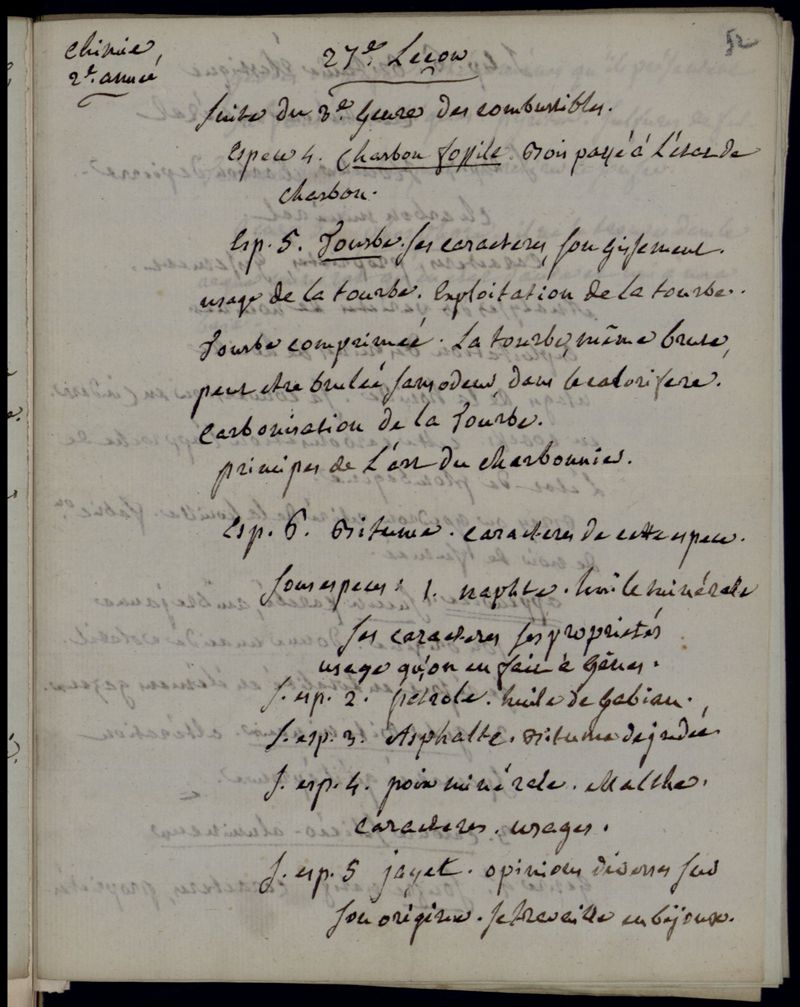 52
Chimie,
2e. année
27e. Leçon
Suite du 3e. Genre des combustibles.
Espece 4. Charbon fossile. Bois passé à L'état de
charbon.
Esp. 5. Tourbe. Ses caracteres, son gissement.
usage de la tourbe. Exploitation de la tourbe.
Tourbe comprimée. La tourbe, même brute,
peut etre brulée, sans odeur, dans le calorifere.
Carbonisation de la Tourbe.
principes de L'art du charbonnier.
Esp. 6. Bitume. caracteres de cette espece.
Sous especes: 1. naphte. huile minérale
Ses caracteres ses proprietés
usage qu'on en fait à Gênes.
S. esp. 2. petrole. huile de Gabian.
S. esp. 3. Asphalte. Bitume de judée
S. esp. 4. poix minérale. Malthe.
caracteres. usages.
S. esp. 5 jayet. opinions diverses sur
son origine. Se travaille en bijoux.